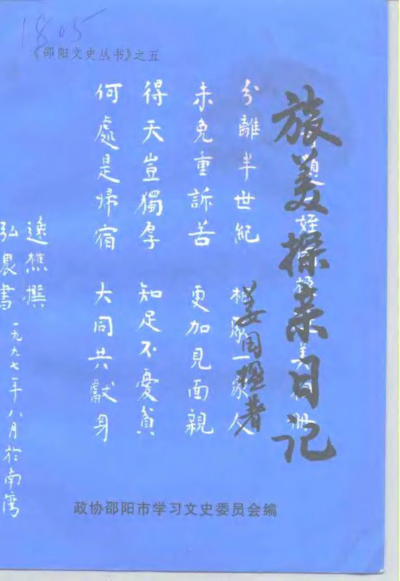 1805
《邵阳文史丛书》之五
旅美探亲日记
姜国楹著
分離半世紀 相聚一家人
未免重訴苦 更加見面親
得天豈獨厚 知足不憂貧
何處是帰宿 大同共獻身
遠樵撰
弘農書
一九九七年八月於南灣
政协邵阳市学习文史委员会编